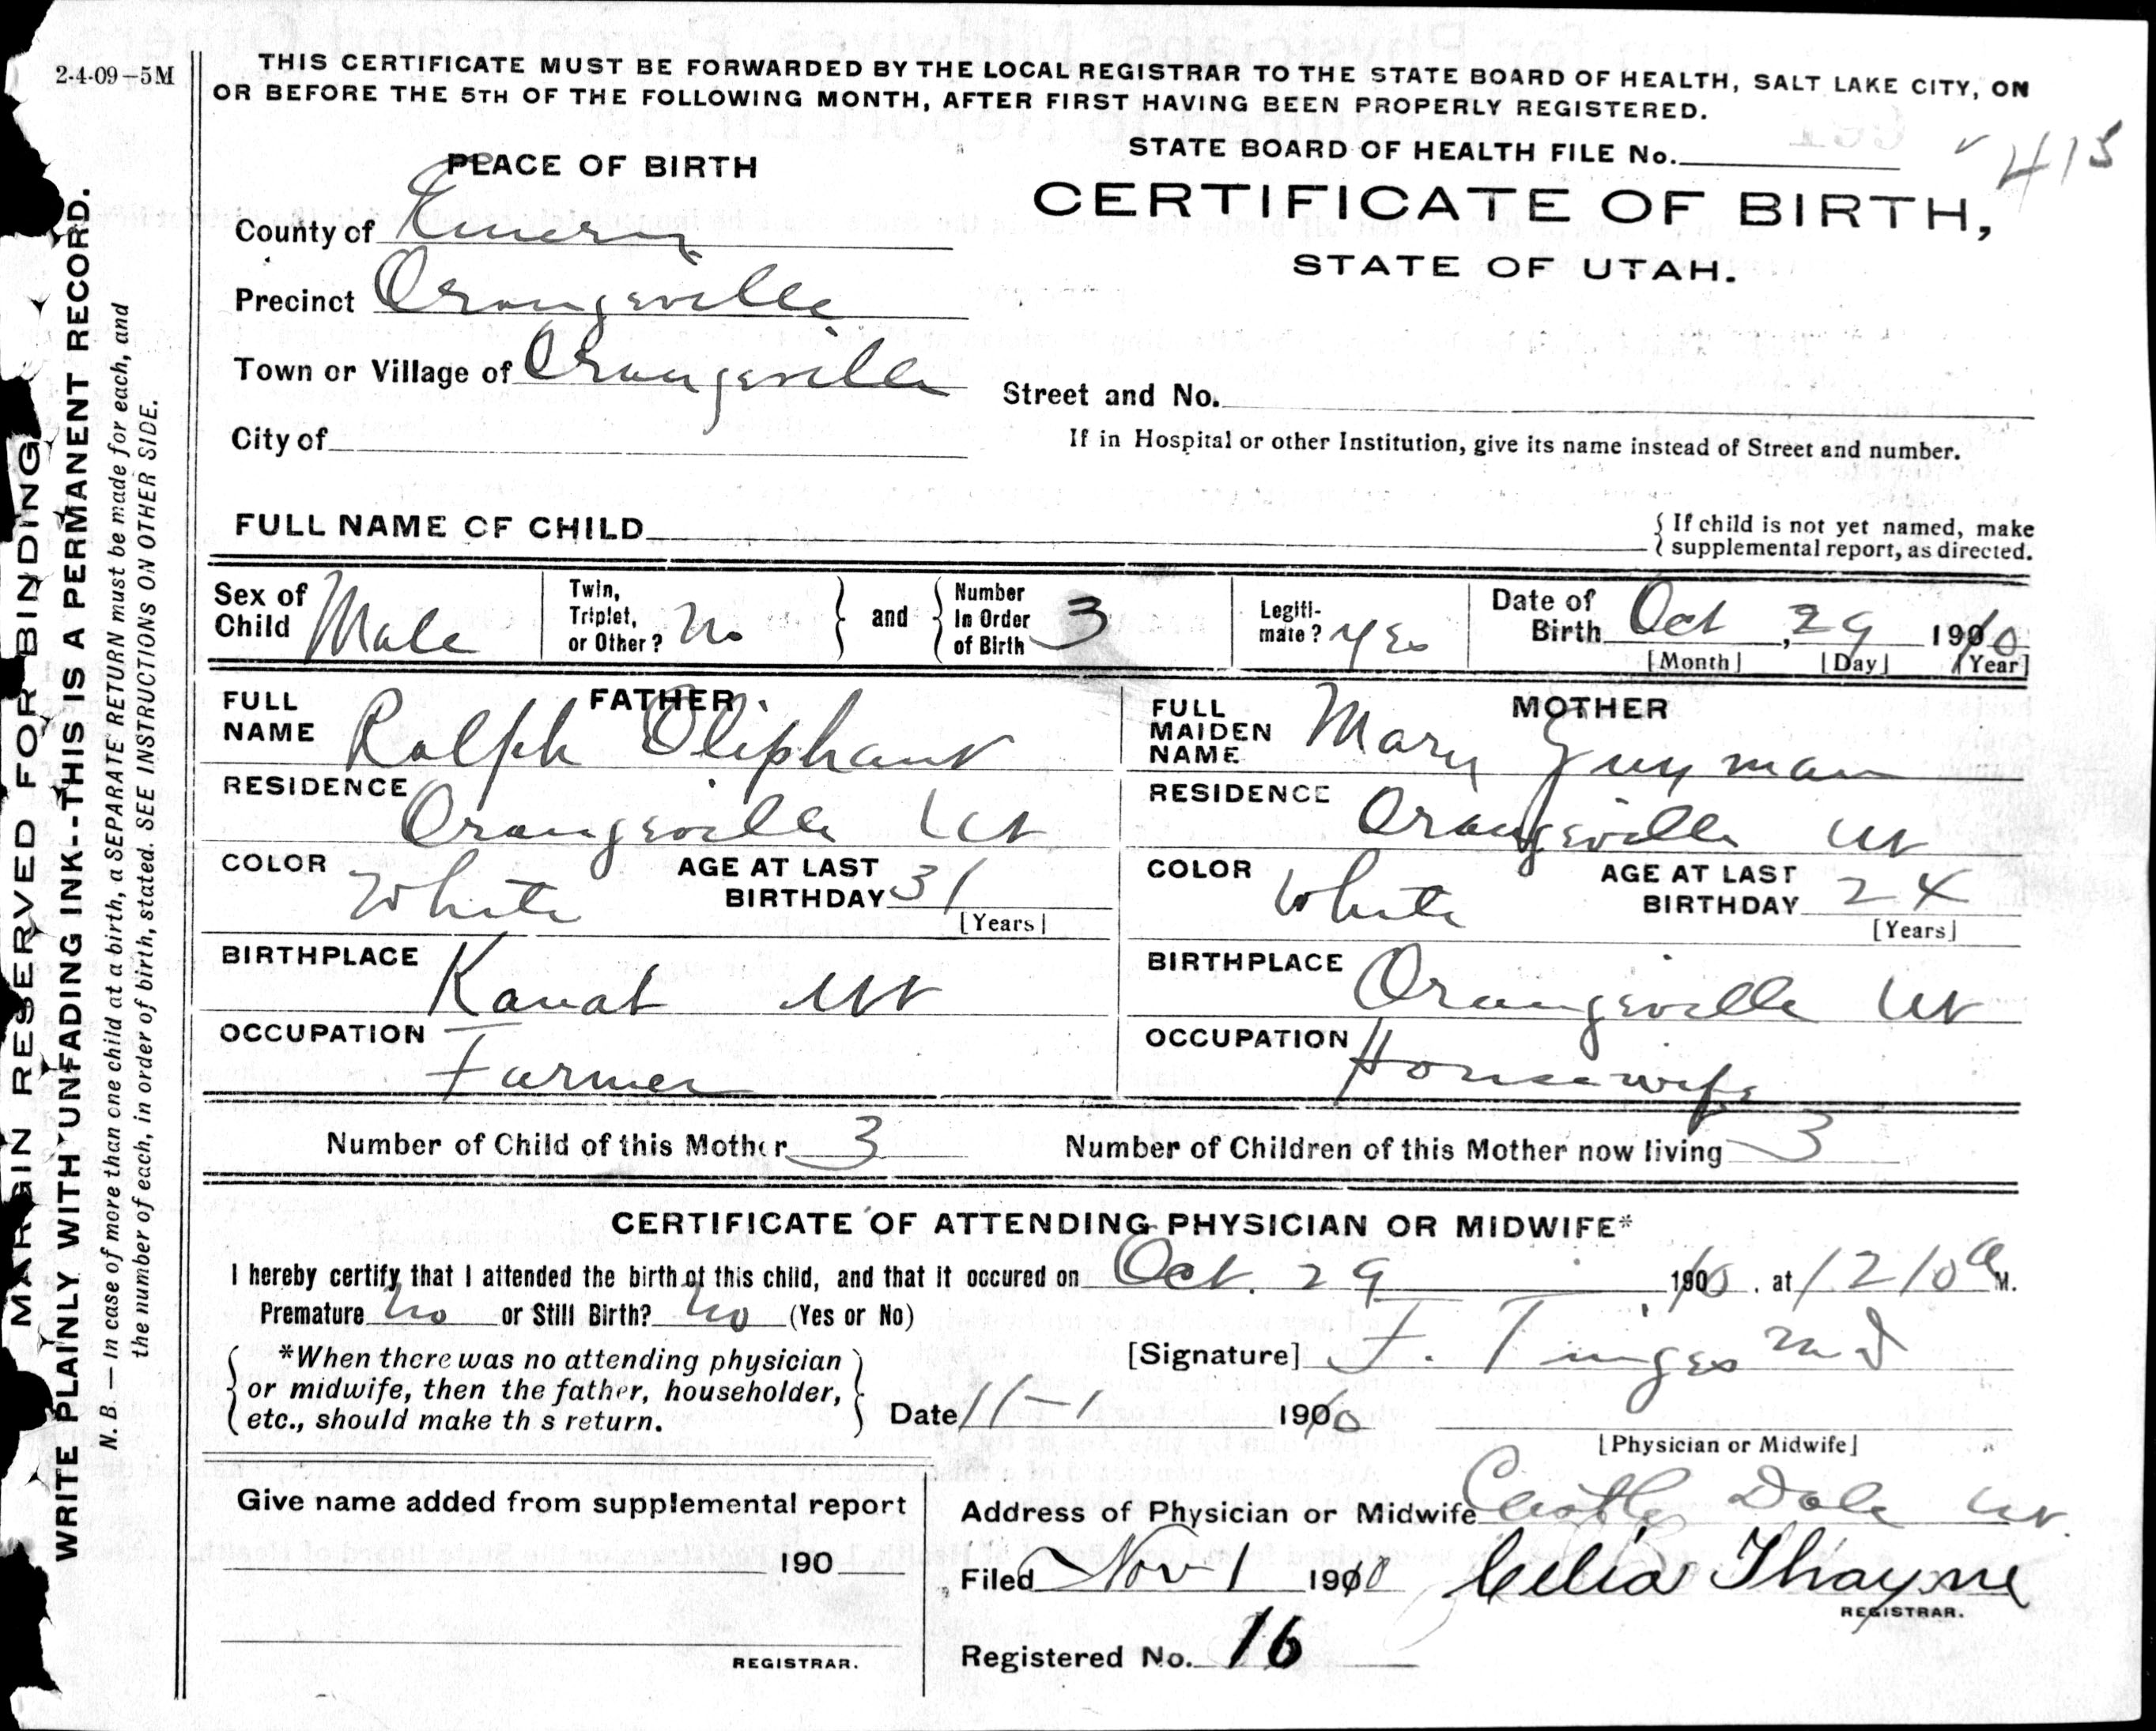 2-4-09-5M
THIS CERTIFICATE MUST BE FORWARDED BY THE LOCAL REGISTRAR TO THE STATE BOARD OF HEALTH, SALT LAKE CITY, ON
OR BEFORE THE 5TH OF THE FOLLOWING MONTH, AFTER FIRST HAVING BEEN PROPERLY REGISTERED.
PLACE OF BIRTH
STATE BOARD OF HEALTH FILE No. 413
CERTIFICATE OF BIRTH,
STATE OF UTAH.
County of Emery
Precinct Orangeville
Town or Village of Orangeville
Street and No.
City of
If in Hospital or other Institution, give its name instead of Street and number.
FULL NAME OF CHILD
If child is not yet named, make
supplemental report, as directed.
Sex of Child Male
Twin, Triplet, or Other? No
and
Number In Order of Birth 3
Legiti-mate? Yes
Date of Birth Oct, 29 1910
[Month] [Day] [Year]
FATHER
FULL NAME Ralph Oliphant
RESIDENCE Orangeville Ut
COLOR White AGE AT LAST BIRTHDAY 31
[Years]
BIRTHPLACE Kanab Ut
OCCUPATION Farmer
MOTHER
FULL MAIDEN NAME Mary Guyman
RESIDENCE Orangeville Ut
COLOR White AGE AT LAST BIRTHDAY 24
[Years]
BIRTHPLACE Orangeville Ut
OCCUPATION Housewife
Number of Child of this Mother 3 Number of Children of this Mother now living 3
CERTIFICATE OF ATTENDING PHYSICIAN OR MIDWIFE*
I hereby certify that I attended the birth of this child, and that it occured on Oct. 29 1910, at 1210 a M.
Premature No or Still Birth? No (Yes or No)
*When there was no attending physician
or midwife, then the father, householder,
etc., should make th s return.
[Signature] F. M D
Date 11-1 1910
[Physician or Midwife]
Give name added from supplemental report
190
REGISTRAR.
Address of Physician or Midwife Castle Dale Ut.
Filed Nov 1 1910 Celia Thayne
REGISTRAR.
Registered No. 16
MARGIN RESERVED FOR BINDING
WRITE PLAINLY WITH UNFADING INK--THIS IS A PERMANENT RECORD.
N. B. — In case of more than one child at a birth, a SEPARATE RETURN must be made for each, and
the number of each, in order of birth, stated. SEE INSTRUCTIONS ON OTHER SIDE.